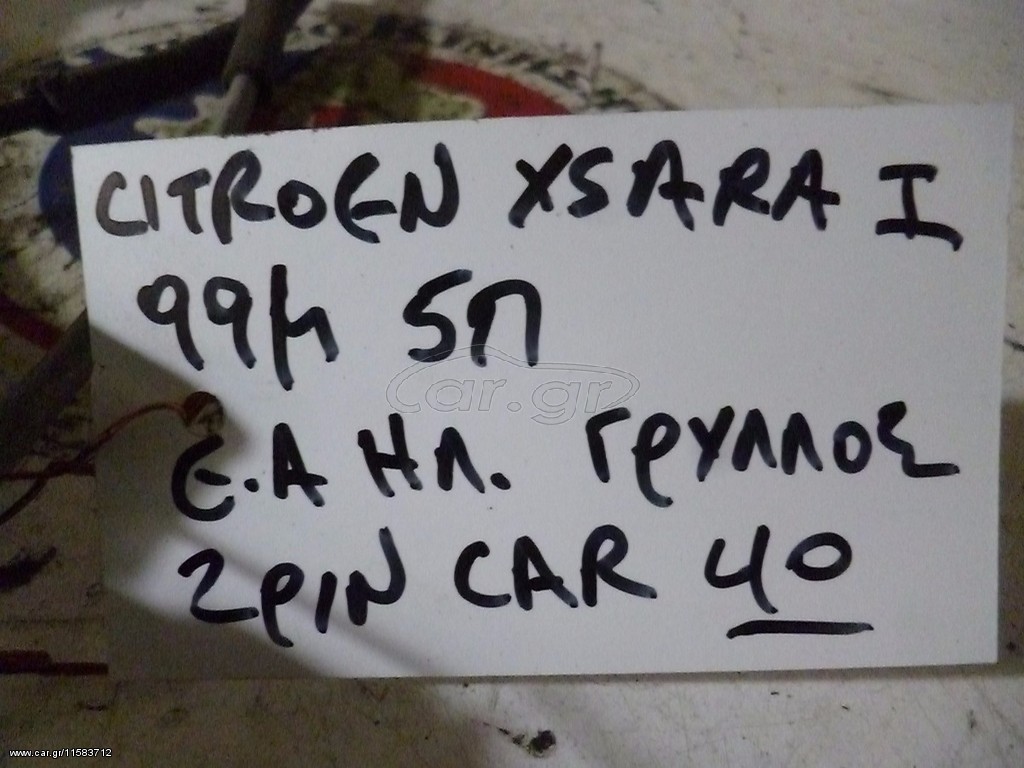 CITROEN XSARA I
99μ 5Π
car.gr
Ε.Α ΗΛ. ΓΡΥΛΛΟΣ
2PIN CAR 40
www.car.gr/11583712